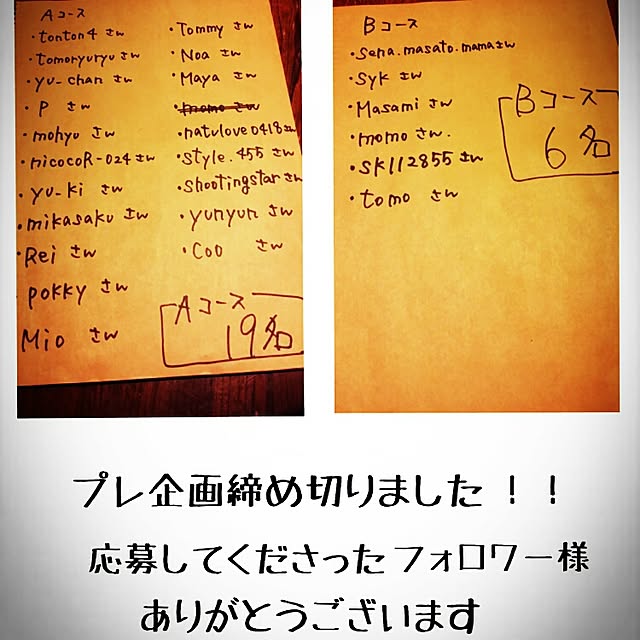 Aコース
・tonton4 さん
・tomoryuryu さん
・yu_chan さん
・P さん
・mohyu さん
・nicocoR-024 さん
・yu-ki さん
・mikasaku さん
・Rei さん
pokky さん
Mio さん
・Tommy さん
・Noa さん
・Maya さん
・momo さん
・natulove0418さん
・style.455 さん
・shootingstarさん
・yunyun さん
・Coo さん
Aコース
19名
Bコース
・sena.masato.mamaさん
・syk さん
・Masami さん
・momo さん.
・sk112855 さん
・tomo さん
Bコース
6名
プレ企画締め切りました！！
応募してくださったフォロワー様
ありがとうございます